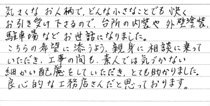 気さくなお人柄で、どんな小さなことでも快く
お引き受け下さるので、台所の内装や外壁塗装、
駐車場などお世話になりました。
こちらの希望に添うよう、親身に相談に乗って
いただき、工事の間も、素人では気がつかない
細かい配慮をしていただき、とても助かりました。
良心的な工務店さんだと思っております。